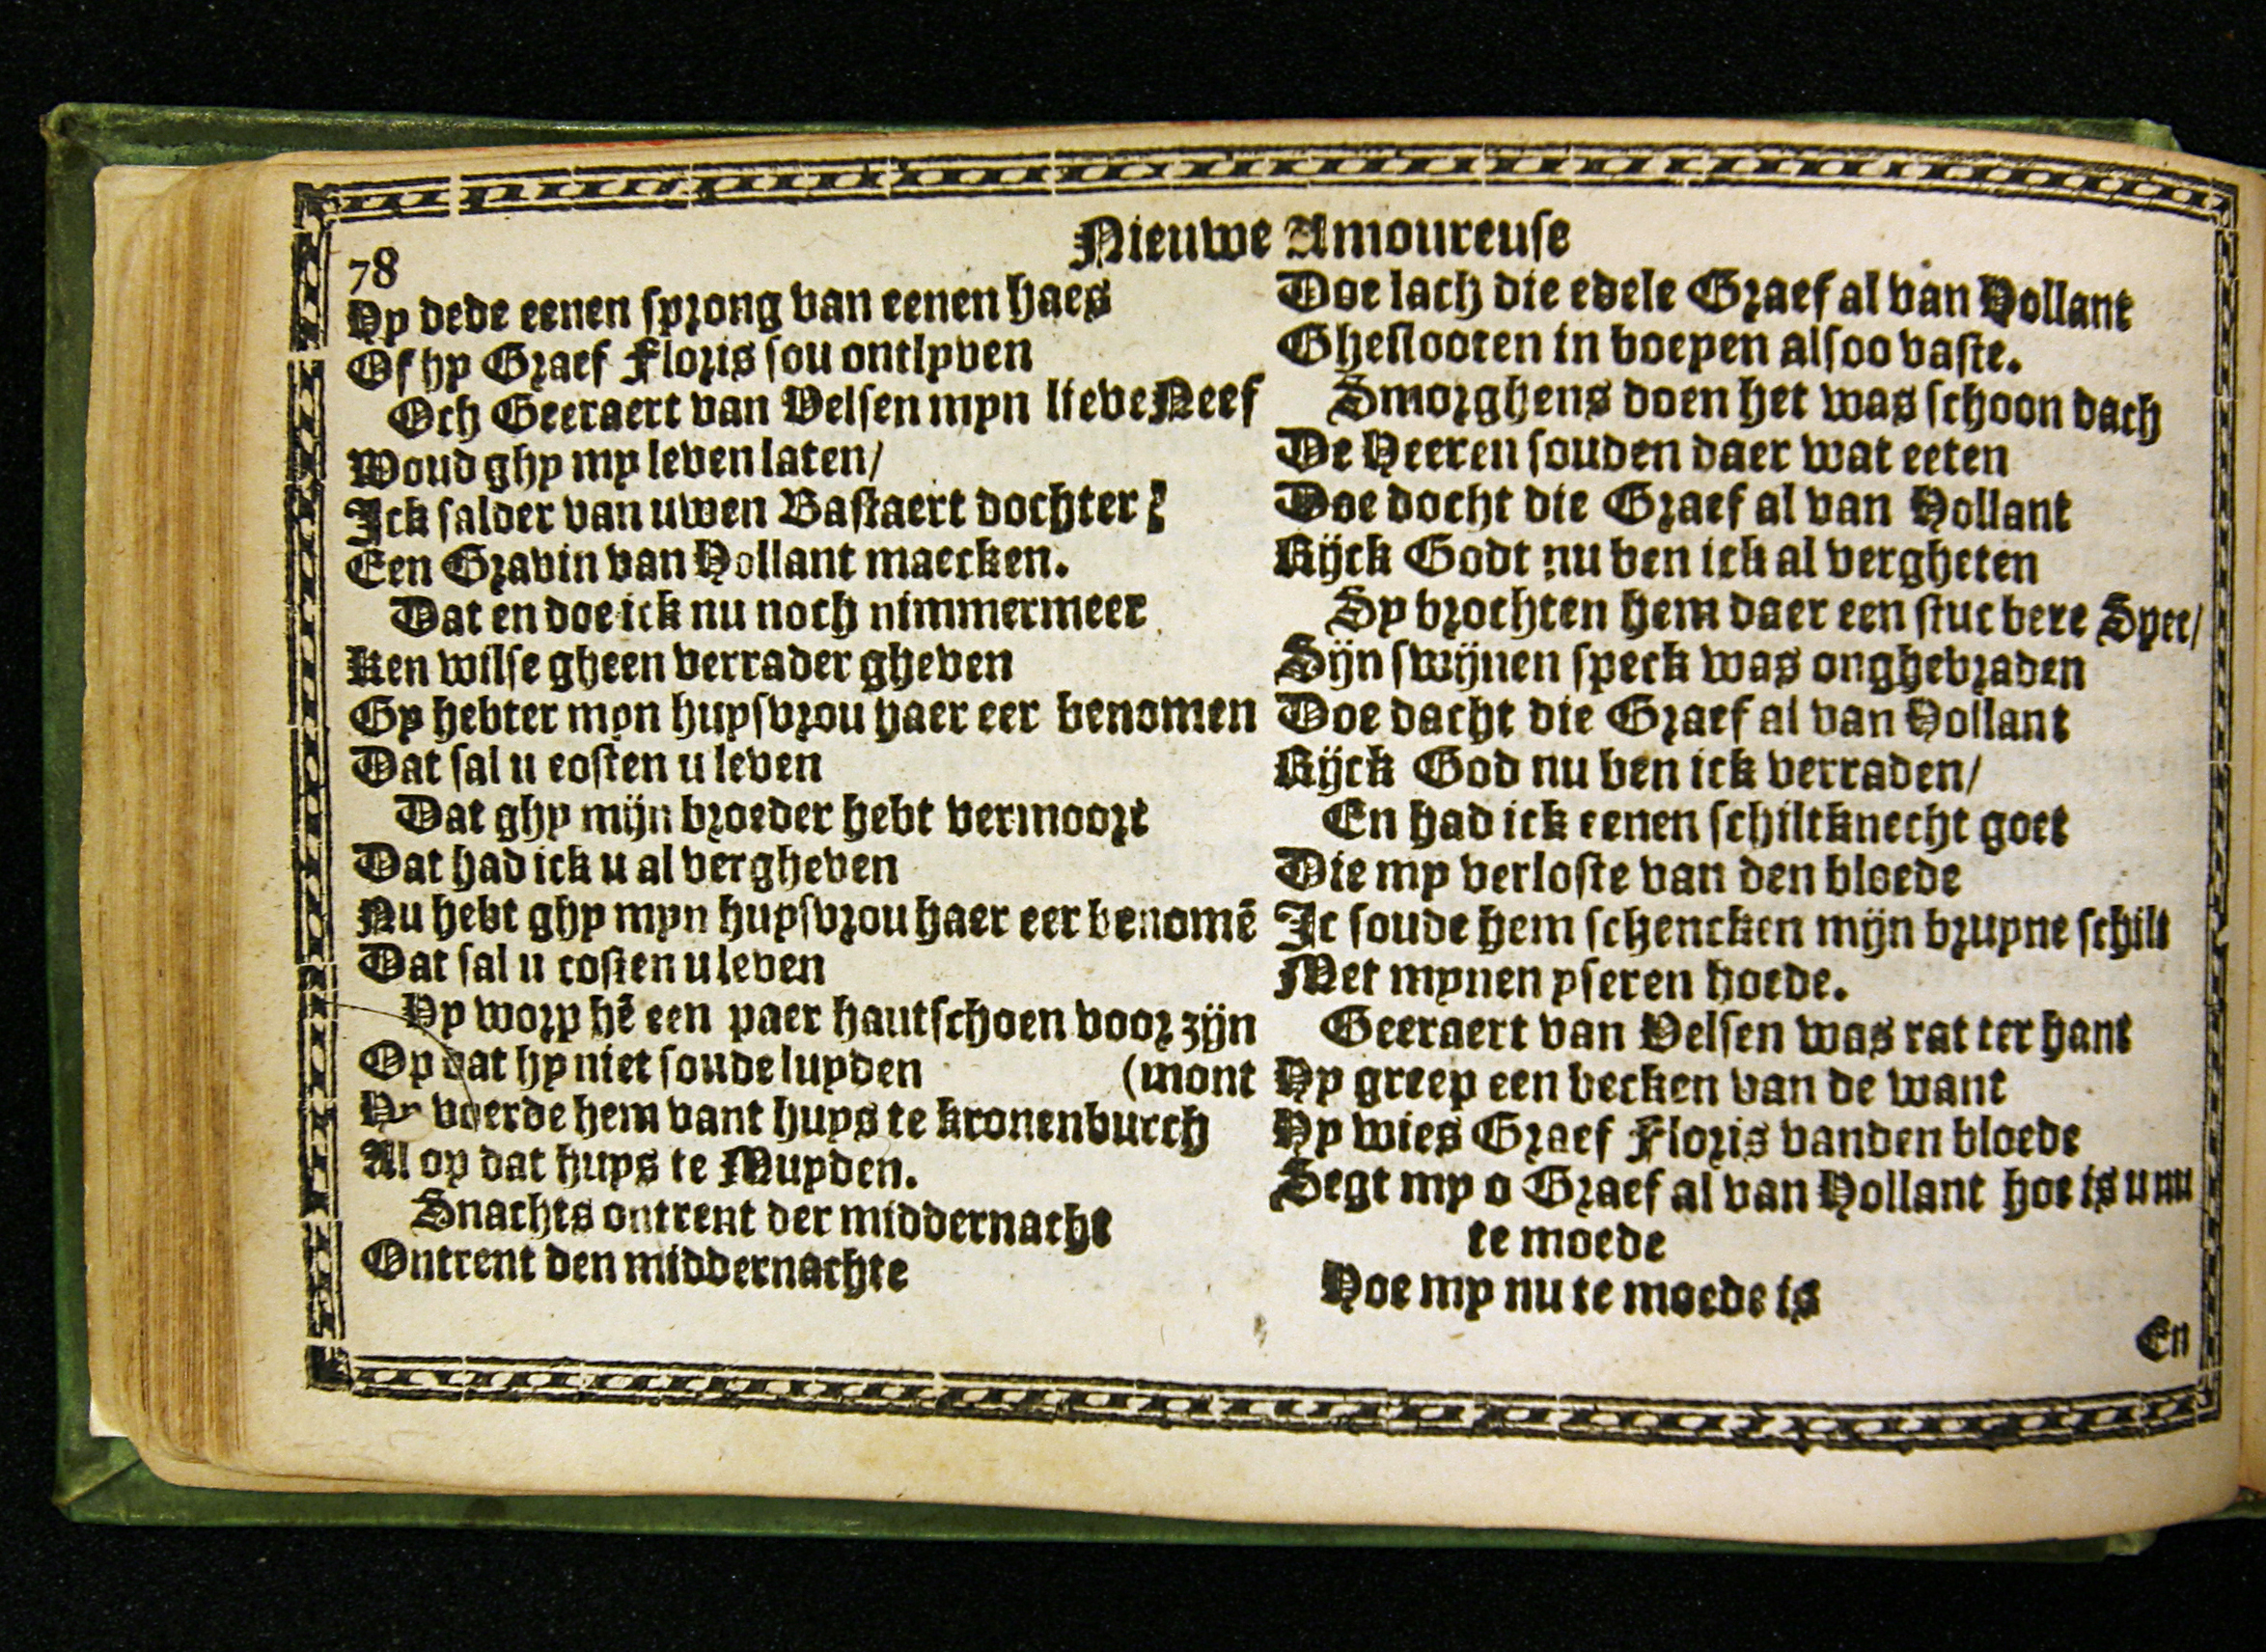 78
Nieuwe Amoureuse
Hy dede eenen sprong van eenen haes
Of hy Graef Floris sou ontlyven
Och Geeraert van Velsen myn lieve Neef
Woud ghy my leven laten/
Ick salder van uwen Bastaert dochter
Een Gravin van Hollant maecken.
Dat en doe ick nu noch nimmermeer
Ken wilse gheen verrader gheven
Gy hebter myn huysvrou haer eer benomen
Dat sal u costen u leven
Dat ghy mijn broeder hebt vermoort
Dat had ick u al vergheven
Nu hebt ghy myn huysvrou haer eer benomē
Dat sal u costen u leven
Hy worp hē een paer hantschoen voor zijn
Op dat hy niet soude luyden (mont
Hy voerde hem vant huys te kronenburch
Al op dat huys te Muyden.
Snachts ontrent der middernacht
Ontrent den middernachte
Doe lach die edele Graef al van Hollant
Gheslooten in boeyen alsoo vaste.
Smorghens doen het was schoon dach
De Heeren souden daer wat eeten
Doe docht die Graef al van Hollant
Rijck Godt nu ben ick al vergheten
Sy brochten hem daer een stuc bere Spec/
Sijn swijnen speck was onghebraden
Doe dacht die Graef al van Hollant
Rijck God nu ben ick verraden/
En had ick eenen schiltknecht goet
Die my verloste van den bloede
Ic soude hem schencken mijn bruyne schilt
Met mynen yseren hoede.
Geeraert van Velsen was rat ter hant
Hy greep een becken van de want
Hy wies Graef Floris vanden bloede
Segt my o Graef al van Hollant hoe is u nu
te moede
Hoe my nu te moede is
En